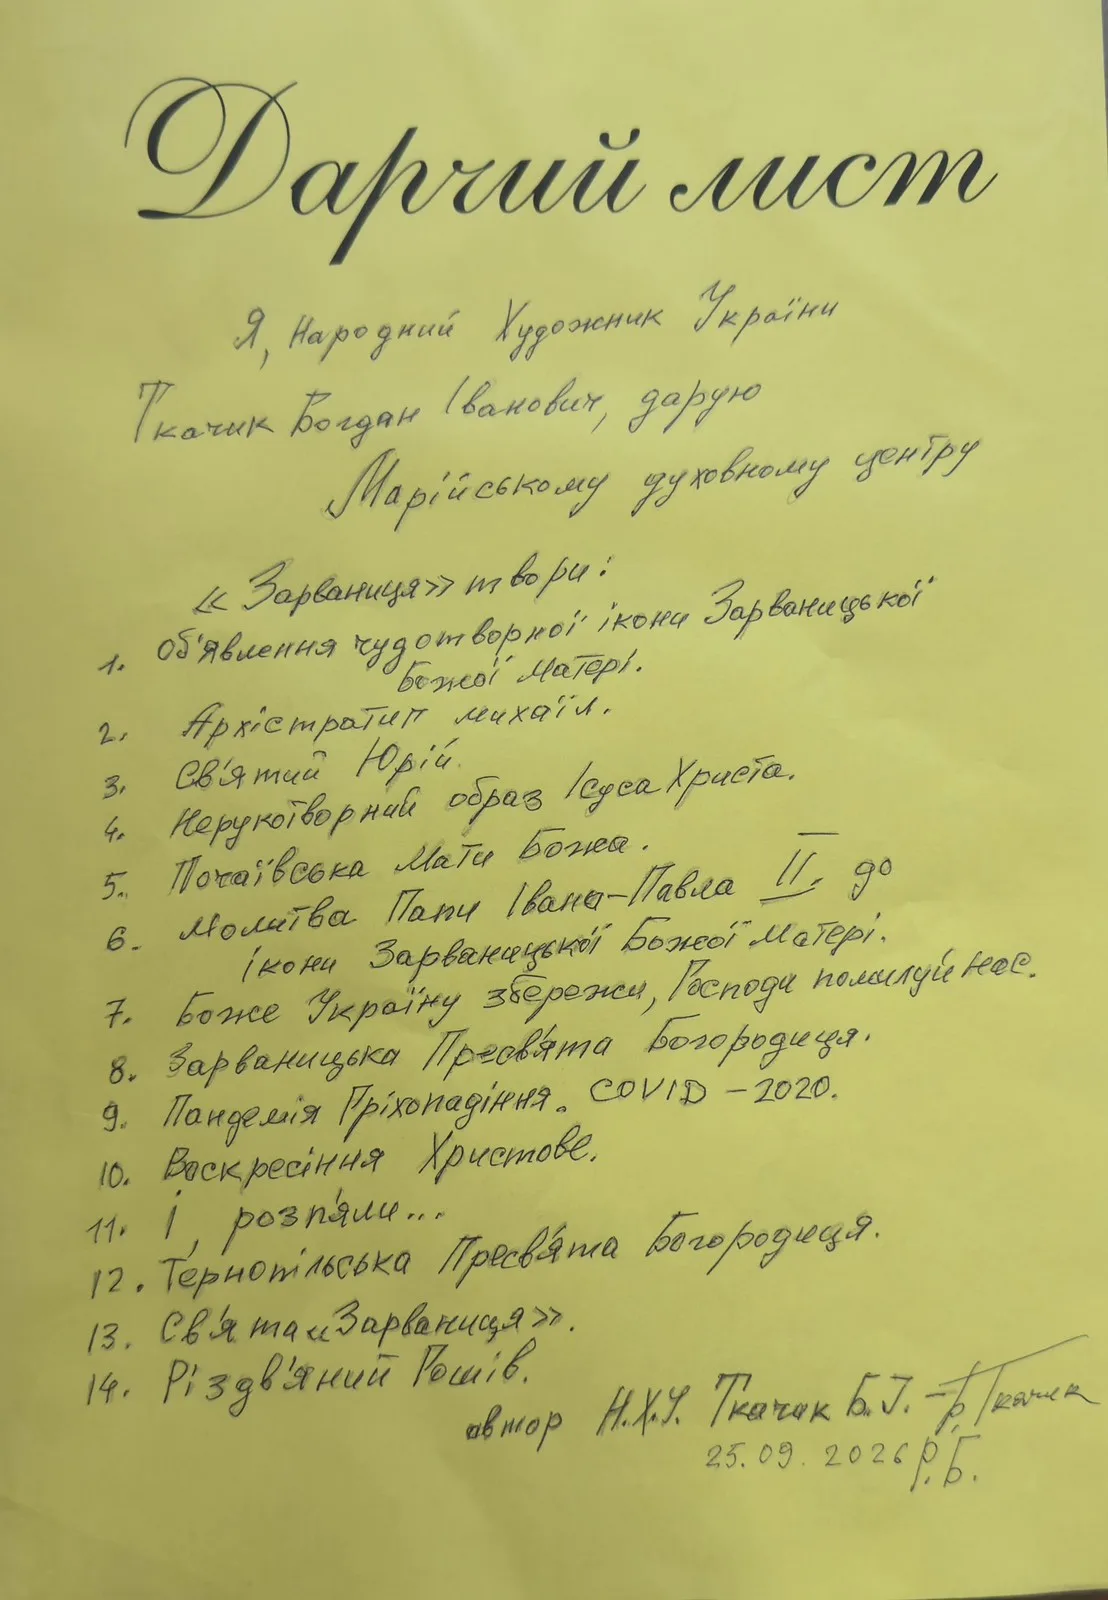 Дарчий лист
Я, Народний Художник України
Ткачик Богдан Іванович, дарую
Марійському духовному центру
«Зарваниця» твори:
1. Об'явлення чудотворної ікони Зарваницької
Божої Матері.
2. Архістратиг Михаїл.
3. Св'ятий Юрій.
4. Нерукотворний образ Ісуса Христа.
5. Почаївська Мати Божа.
6. Молитва Папи Івана-Павла II. до
ікони Зарваницької Божої Матері.
7. Боже Україну збережи, Господи помилуй нас.
8. Зарваницька Пресв'ята Богородиця.
9. Пандемія Гріхопадіння. COVID - 2020.
10. Воскресіння Христове.
11. І, розп'яли...
12. Тернопільська Пресв'ята Богородиця.
13. Св'ята „Зарваниця».
14. Різдв'яний Гошів.
автор Н.Х.У. Ткачик Б.І. - Б. Ткачик
25.09.2026 р.Б.